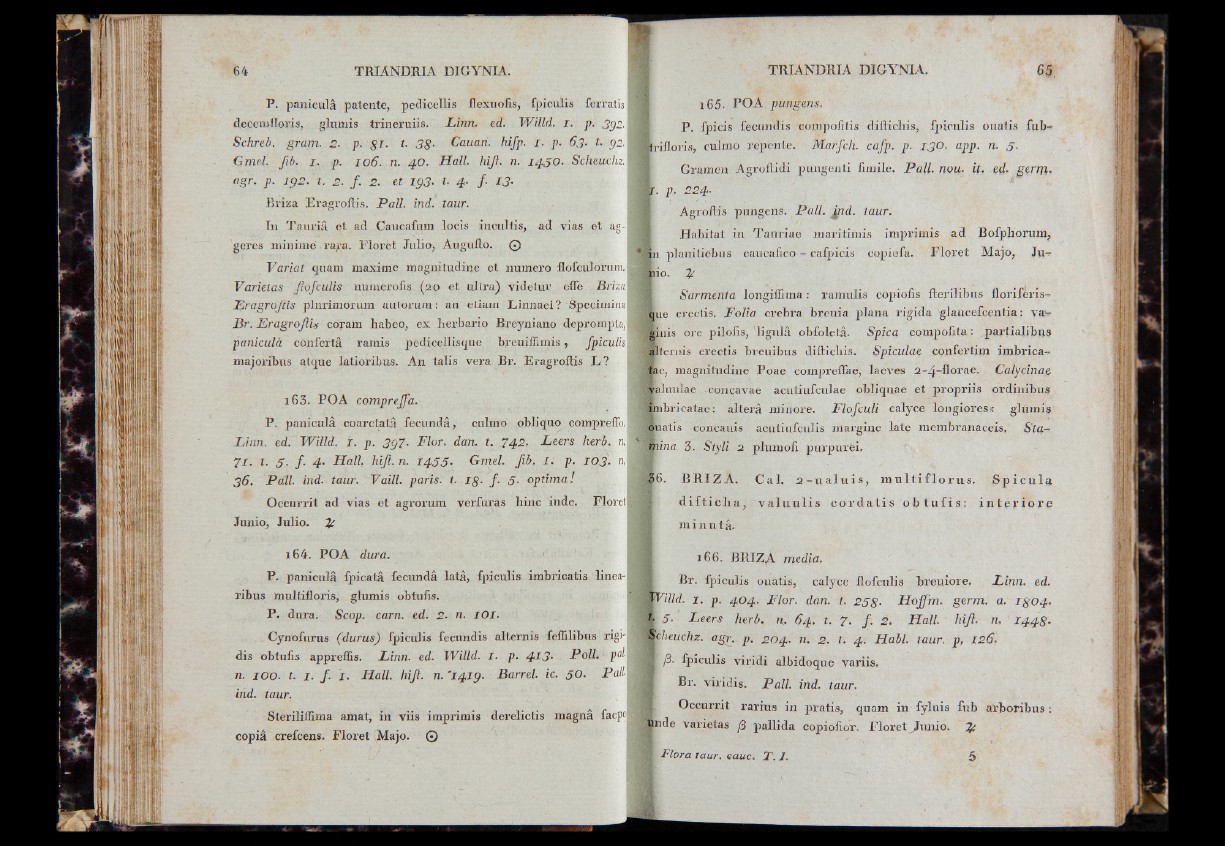 64 TRIANDRIA DIGYNIA.
P. paniculâ patente, pedicellis flexuoſis, ſpiculis ſerratis
decemfloris, glumis trineruiis. Linn. ed. Willd. 1. p. 392.
Schreb. gram. 2. p. 81. t. 38. Cauan. hiſp. 1. p. 63. t. 92.
Gmel. ſib. 1. p. 106. n. 40. Hall. hiſt. n. 1450. Scheuchz.
agr. p. 192. t. 2. f. 2. et 193. t. 4. f. 13.
Briza Eragroſtis. Pall. ind. taur.
In Tauriâ et ad Caucaſum locis incultis, ad vias et ag-
geres minime rara. Floret Julio, Auguſto. ⊙
Variat quam maxime magnitudine et numero floſculorum.
Varietas floſculis numeroſis (20 et ultra) videtur eſſe Briza
Eragroſtis plurimorum autorum: an etiam Linnaei? Specimina
Br. Eragroſtis coram habeo, ex herbario Breyniano deprompta,
paniculâ confertâ ramis pedicellisque breuiſſimis, ſpiculis
majoribus atque latioribus. An talis vera Br. Eragroſtis L?
163. POA compreſſa.
P. paniculâ coarctatâ ſecundâ, culmo obliquo compreſſo.
Linn. ed. Willd. 1. p. 397. Flor. dan. t. 742. Leers herb. n.
71. t. 5. f. 4. Hall. hiſt. n. 1455. Gmel. ſib. 1. p. 103. n.
36. Pall. ind. taur. Vaill. paris. t. 18. f. 5. optima!
Occurrit ad vias et agrorum verſuras hinc inde. Floret
Junio, Julio. ♃
164. POA dura.
P. paniculâ ſpicatâ ſecundâ latâ, ſpiculis imbricatis linea-
ribus multifloris, glumis obtuſis.
P. dura. Scop. carn. ed. 2. n. 101.
Cynoſurus (durus) ſpiculis ſecundis alternis ſeſſilibus rigi-
dis obtuſis appreſſis. Linn. ed. Willd. 1. p. 413. Poll. pal.
n. 100. t. 1. f. 1. Hall. hiſt. n. 1419. Barrel. ic. 50. Pall.
ind. taur.
Steriliſſima amat, in viis imprimis derelictis magnâ ſaepe
copiâ creſcens. Floret Majo. ⊙
TRIANDRIA DIGYNIA. 65
165. POA pungens.
P. ſpicis ſecundis compoſitis diſtichis, ſpiculis ouatis ſub-
trifloris, culmo repente. Marſch. caſp. p. 130. app. n. 5.
Gramen Agroſtidi pungenti ſimile. Pall. nou. it. ed. germ.
1. p. 224.
Agroſtis pungens. Pall. ind. taur.
Habitat in Tauriae maritimis imprimis ad Boſphorum,
in planitiebus caucaſico-caſpicis copioſa. Floret Majo, Ju-
nio. ♃
Sarmenta longiſſima: ramulis copioſis ſterilibus floriferis-
que erectis. Folia crebra breuia plana rigida glauceſcentia: va-
ginis ore piloſis, ligulâ obſoletâ. Spica compoſita: partialibus
alternis erectis breuibus diſtichis. Spiculae confertim imbrica-
tae, magnitudine Poae compreſſae, laeves 2-4-florae. Calycinae
valuulae concavae acutiuſculae obliquae et propriis ordinibus
imbricatae: alterâ minore. Floſculi calyce longiores: glumis
ouatis concauis acutiuſculis margine late membranaceis. Sta-
mina 3. Styli 2 plumoſi purpurei.
36. BRIZA. Cal. 2-ualuis, multiflorus. Spicula
diſticha, valuulis cordatis obtuſis: interiore
minutâ.
166. BRIZA media.
Br. ſpiculis ouatis, calyce floſculis breuiore. Linn. ed.
Willd. 1. p. 404. Flor. dan. t. 258. Hoffm. germ. a. 1804.
t. 5. Leers herb. n. 64. t. 7. f. 2. Hall. hiſt. n. 1448.
Scheuchz. agr. p. 204. n. 2. t. 4. Habl. taur. p. 126.
β. ſpiculis viridi albidoque variis.
Br. viridis. Pall. ind. taur.
Occurrit rarius in pratis, quam in ſyluis ſub arboribus:
unde varietas β pallida copioſior. Floret Junio. ♃
Flora taur. cauc. T. I. 5